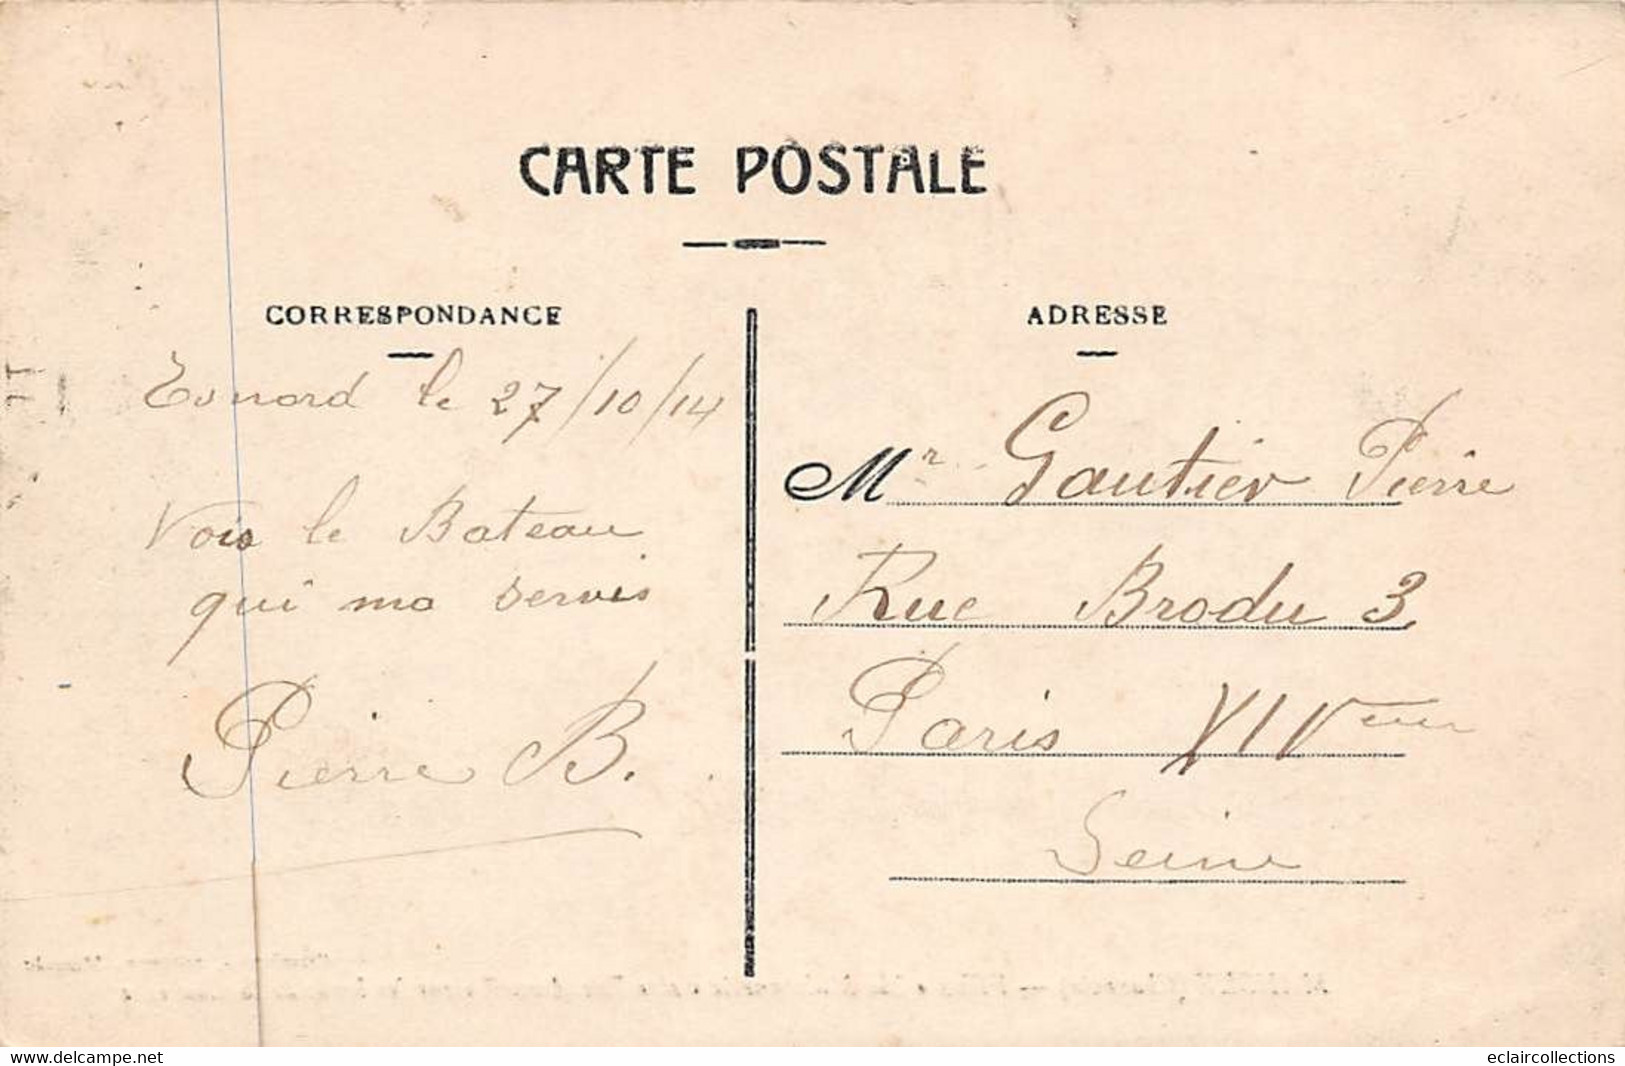 CARTE POSTALE
CORRESPONDANCE
ADRESSE
le 27/10/14
Vois le Bateau
qui ma servis
Pierre B.
Mr Gautier Pierre
Rue Brodu 3
Paris XIVeme
Seine
www.delcampe.net
eclaircollections